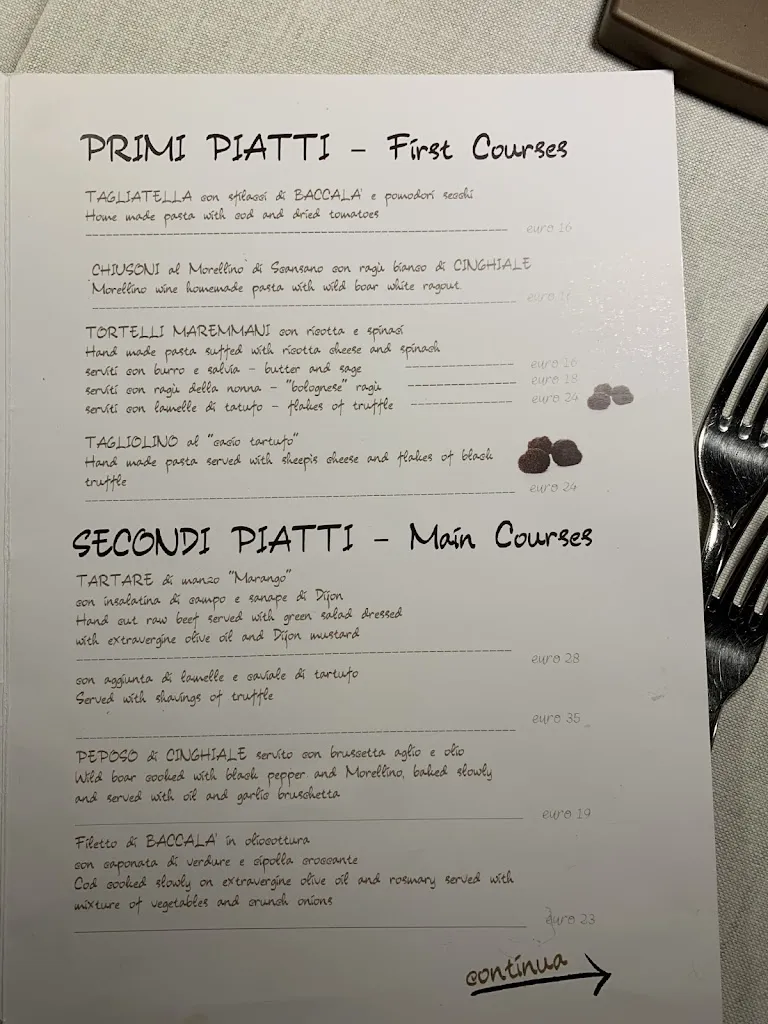 PRIMI PIATTI – First Courses
TAGLIATELLA con sfilacci di BACCALA' e pomodori secchi
Home made pasta with cod and dried tomatoes
euro 16
CHIUSONI al Morellino di Scansano con ragù bianco di CINGHIALE
Morellino wine homemade pasta with wild boar white ragout
euro
TORTELLI MAREMMANI con ricotta e spinaci
Hand made pasta suffed with ricotta cheese and spinach
serviti con burro e salvia – butter and sage euro 16
serviti con ragù della nonna – "bolognese" ragù euro 18
serviti con lamelle di tatufo – flakes of truffle euro 24
TAGLIOLINO al "cacio tartufo"
Hand made pasta served with sheepis cheese and flakes of black
truffle
euro 24
SECONDI PIATTI – Main Courses
TARTARE di manzo "Marango"
con insalatina di campo e sanape di Dijon
Hand cut raw beef served with green salad dressed
with extravergine olive oil and Dijon mustard
euro 28
con aggiunta di lamelle e caviale di tartufo
Served with shavings of truffle
euro 35
PEPOSO di CINGHIALE servito con bruscetta aglio e olio
Wild boar cooked with black pepper and Morellino, baked slowly
and served with oil and garlic bruschetta
euro 19
Filetto di BACCALA' in oliocottura
con caponata di verdure e cipolla croccante
Cod cooked slowly on extravergine olive oil and rosmary served with
mixture of vegetables and crunch onions
euro 23
continua